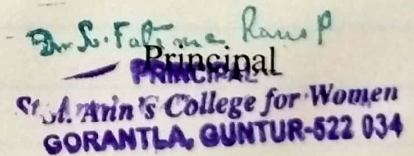 Dr. Sr. Fatima Rani P
Principal
PRINCIPAL
St. Ann's College for Women
GORANTLA, GUNTUR-522 034